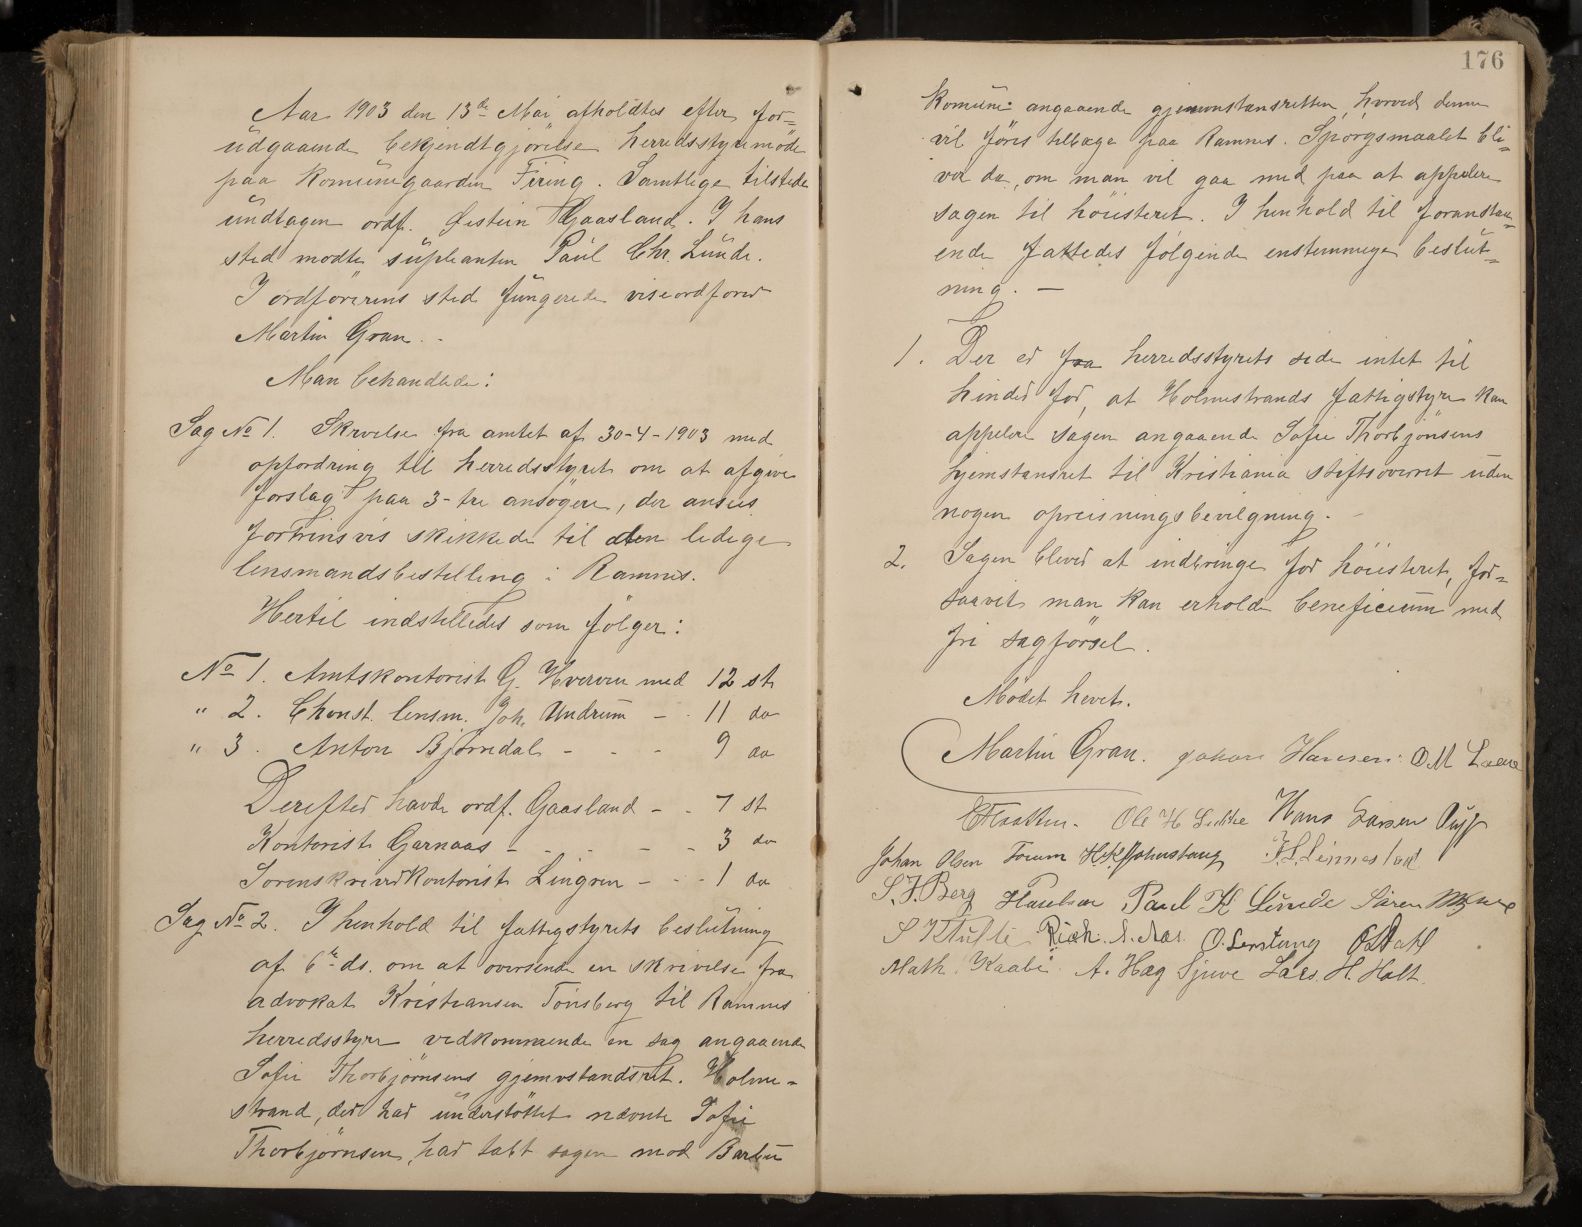 Aar 1903 den 13de Mai afholdtes efter for=
udgaaende bekjendtgjørelse herredsstyremöde
paa komunegaarden Firing. Samtlige tilstede
undtagen ordf. Øistein Gaasland. I hans
sted mödte supleanten Paul Chr. Lunde.
I ordförerens sted fungerede viseordförer
Martin Gran.
Man behandlede:
Sag No 1. Skrivelse fra amtet af 30-4-1903 med
opfordring til herredsstyret om at afgive
forslag paa 3-tre ansögere, der ansees
fortrinsvis skikkede til den ledige
lensmandsbestilling i Ramnes.
Hertil indstilledes som fölger:
No 1. Amtskontorist G. Hverven med 12 st
" 2. Chonst. lensm. Joh. Undrum - - 11 do
" 3. Anton Bjørndal - - - 9 do
Derefter havde ordf. Gaasland - - 7 st
Kontorist Garnaas - - - - - 3 do
Sorenskriverkontorist Lingren - - - 1 do
Sag No 2. I henhold til fattigstyrets beslutning
af 6te ds. om at oversende en skrivelse fra
advokat Kristiansen Tönsberg til Ramnes
herredsstyre vedkommende en sag angaaende
Sofie Thorbjörnsens gjemstandsret. Holme-
strand, der har understöttet nævnte Sofie
Thorbjörnsen, har tabt sagen mod Barbu
176
komune angaaende gjemstansretten, hvorved denne
vil föres tilbage paa Ramnes. Spörgsmaalet bli=
ver da, om man vil gaa med paa at appelere
sagen til höiesteret. I henhold til foranstaa=
ende fattedes fölgende enstemmige beslut=
ning. —
1. Der er fra herredsstyrets side intet til
hinder for, at Holmestrands fattigstyre kan
appelere sagen angaaende Sofie Thorbjönsens
hjemstansret til Kristiania stiftsoverret uden
nogen opreisningsbevilgning.
2. Sagen bliver at indbringe for höiesteret, for=
saavit man kan erholde beneficium med
fri sagförsel.
Mödet hævet.
Martin Gran. Johan Hansen. O M
Ole H Hans Larsen
Johan Olsen
S. J. Berg Paul K Lunde Sören
O. Dahl
Math. Kaabi A. Hag Sjuve Lars. H. Holt.